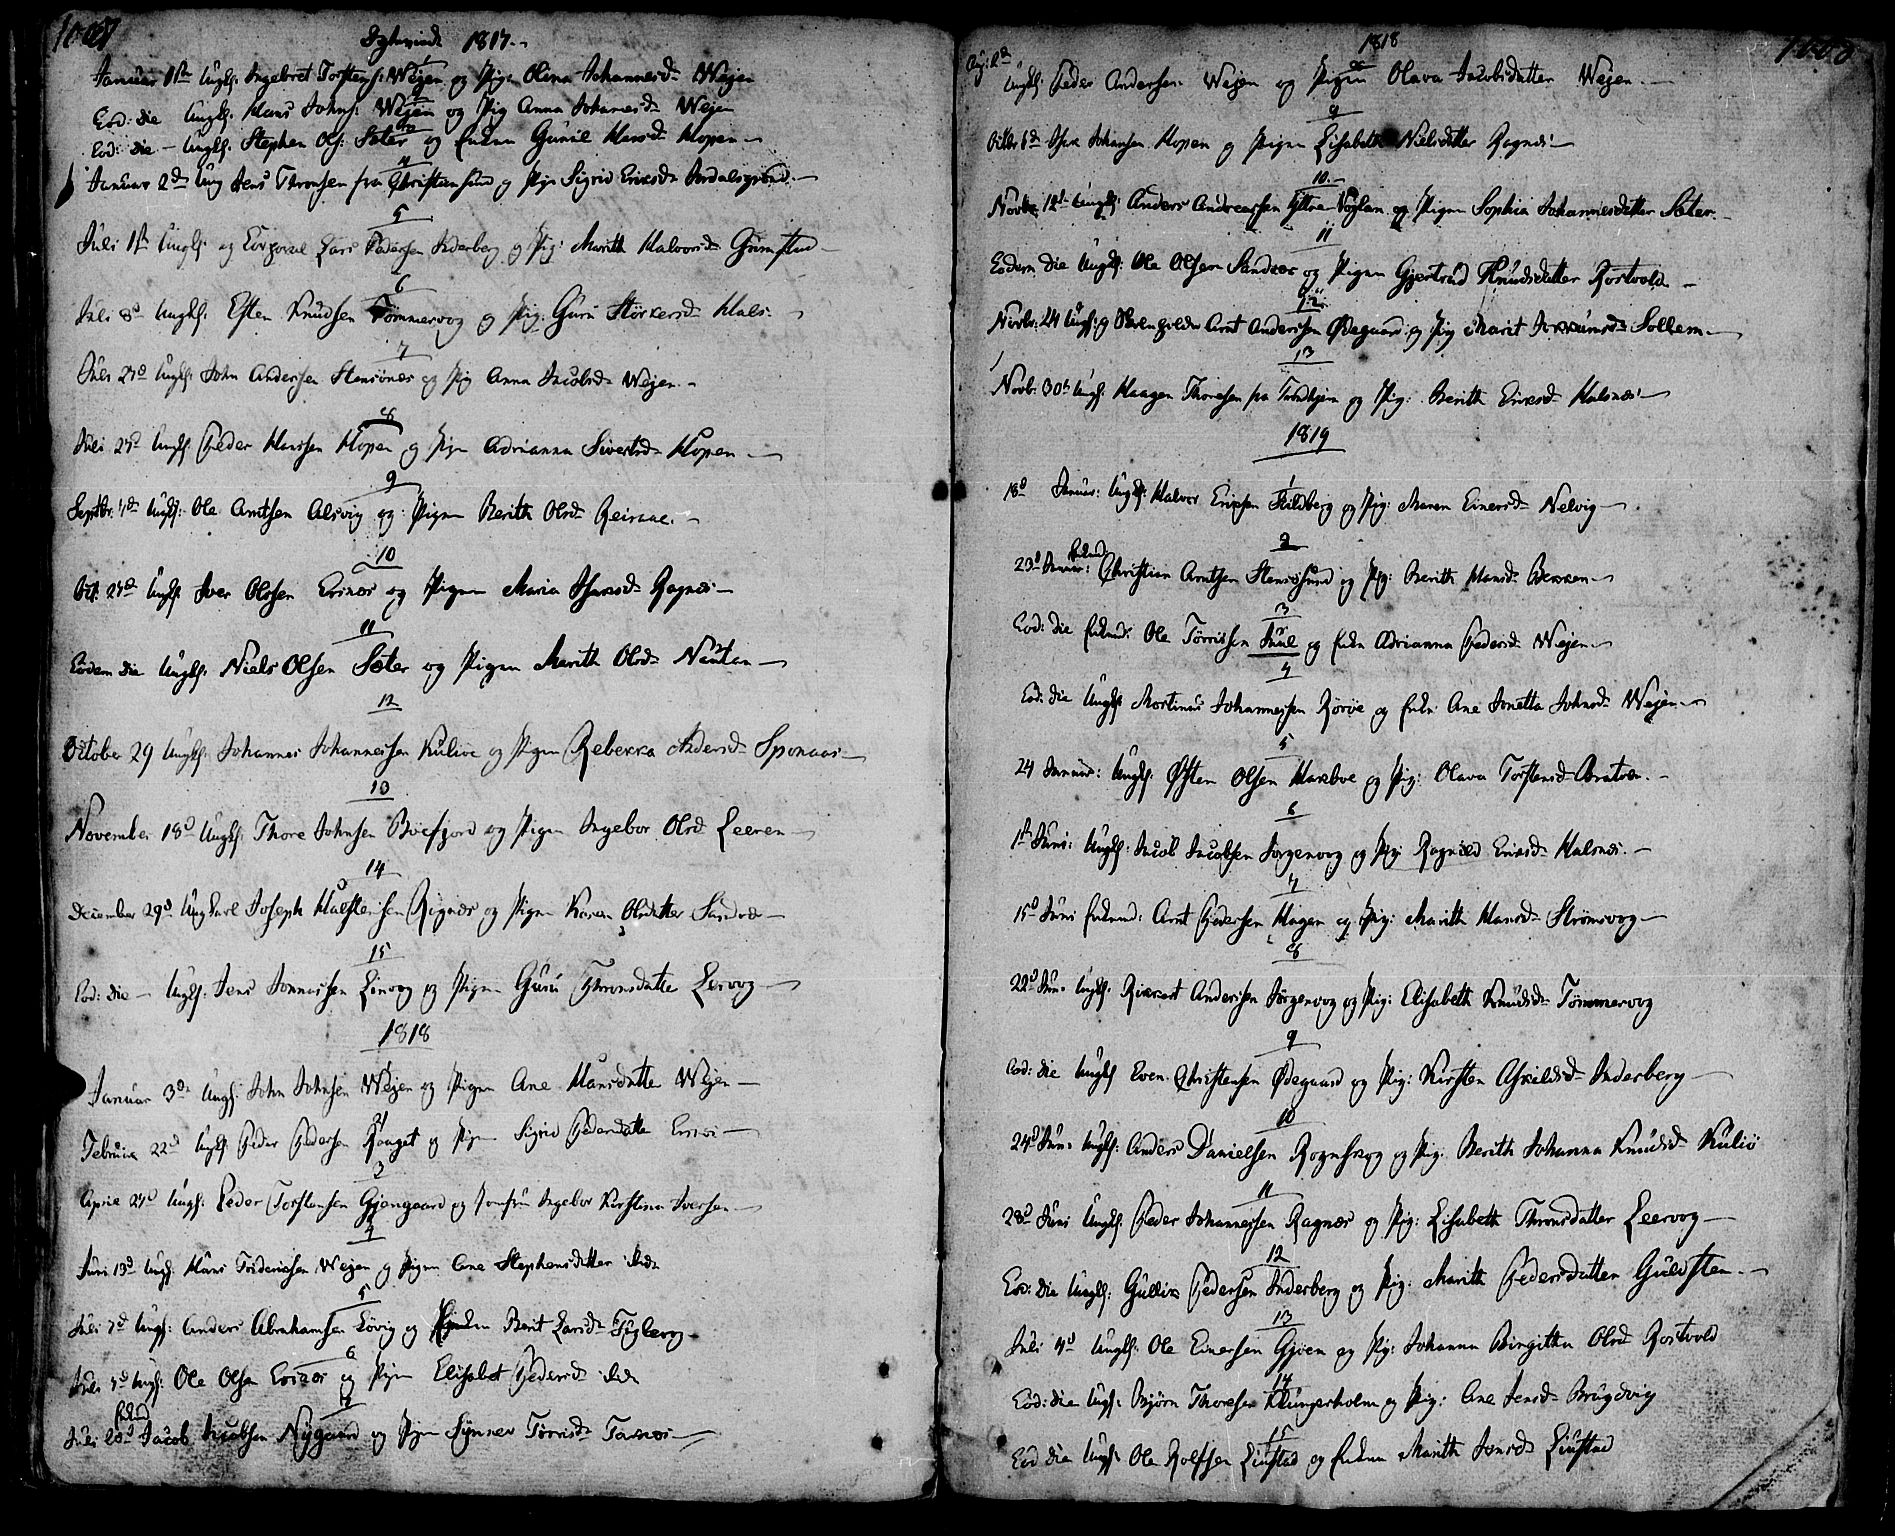 1817
1
Januar 11te Ungk: Ingebret Torstens: Wejen og Pig: Olina Johannesd: Wejen
2
Eod: die Ungk: Hans Johns: Wejen og Pig Anna Johanesd: Wejen
3
Eod: die Ungk: Stephen Ols: Sæter og Enken Guriel Hansd: Hopen
4
Januar 2d Ung Jens Thronsen fra Christiansund og Pige Sigrid Ericksd:
5
Juli 1ste Ungk: og Corporal Lars Pedersen Inderberg og Pig: Marith Halvorsd: Grimstad
6
Juli 8d Ungk: Esten Knudsen Tömmervog og Pig: Guru Störkersd: Hals
7
Juli 27d Ungk: John Andersen Stensönes og Pig Anna Jacobsd: Wejen
8
Juli 27d Ungk: Peder Hansen Hopen og Pigen Adrianna Sivertsd: Hopen
9
Septbr: 4d Ungk: Ole Arntsen Alsvig og Pigen Berith Olsd: Reiraae
10
Oct: 27d Ungk: Iver Olssen Ersnes og Pigen Maria Isaksd: Ragnes
11
Eodem die Ungk: Niels Olsen Sæter og Pigen Marith Olsd: Nauten
12
October 29 Ungk: Johannes Johannessen Kulöe og Pigen Rebekka Andersd: Sponaas
13
November 18d Ungk: Thore Johnsen Böefjord og Pigen Ingebor Olsd: Leeren
14
December 29d Ungkarl Joseph Halstensen Rignæs og Pigen Karen Olsdatter Sandöe
15
Eod: die Ungk: Jens Jonnassen Linvog og Pigen Guru Thronsdatte Lervog
1818
1
Januar 3d: Ungk: John Johnsen Wejen og Pigen Ane Hansdatte Wejen
2
Februar 22d Ungk: Peder Pedersen og Pigen Sigrid Pedersdatte
3
April 27d Ungk: Peder Torstensen Gjengaard og Jomfru Ingebor Kirstina Iversen
4
Juni 19d Ungk: Hans Fridericksen Wejen og Pigen Ane Stephensdatter ibid:
5
Juli 7d Ungk: Anders Abrahamsen Lövig og Pigen Berit Larsd: Fuglevog
6
Juli 7d Ungk: Ole Olsen Ersnes og Pigen Elisabet Pedersd: ibid:
7
Juli 20d Enkmd Jacob Jacobsen Nygaard og Pigen Synnev Törrisd: Tarnes
1818
8
Aug: 2d Ungk: Peder Andersen Wejen og Pigen Olava Jacobsdatter Wejen
9
Octbr 1d Isak Johansen Hopen og Pigen Lisabeth Nielsdatter Ragnes
10
Novbr: 12d Ungk: Anders Andreassen Yttre Voglan og Pigen Sophia Johannesdatter Sæter
11
Eodem die Ungk: Ole Olsen Sandnes og Pigen Gjertrud Knudsdatter Rostvold
12
Novbr: 24 Ungk: og Arnt Andersen Ödegaard og Pig Marit Jockumsd: Sollem
13
Novbr: 30te Ungk: Haagen Thoresen fra Trondhjem og Pig: Berith Ericksd: Halsnes
1819
1
18d Januar: Ungk: Halvor Ericksen Skildberg og Pig: Maren Einersd: Nelvig
2
23d Januar: Enkmd: Christian Arntsen Stensösund og Pig: Berith Hansd: Bekken
3
Eod: die Enkmd: Ole Törrissen Skul og Enken Adrianna Pedersd: Wejen
4
Eod: die Ungk: Mortinus Johannessen Rörvie og Enken Ane Jonetta Johnsd: Wejen
5
24 Januar: Ungk: Östen Olsen Harsboe og Pig: Olava Torstensd: Bratvær
6
1ste Juni: Ungk: Jacob Jacobsen Jörgenvog og Pig: Ragnild Ericksd: Halsnes
7
15d Juni Enkmd: Arnt Pedersen Hagen og Pig: Marith Hansd: Strömsvog
8
22d Jun: Ungk: Rickert Andersen Jörgenvog og Pig: Elisabeth Knudsd: Tömmervog
9
Eod: die Ungk: Even Christensen Ödegaard og Pig: Kirsten Askildsd: Inderberg
10
24d Jun: Ungk: Anders Danielsen Rognskog og Pig: Berith Johanna Knudsd: Kuliö
11
28d Juni Ungk: Peder Johannessen Ragnes og Pig: Lisabeth Thronsdatter Leervog
12
Eod: die Ungk: Gullik Pedersen Inderberg og Pig: Marith Pedersdatter Guldsten
13
Juli 4d Ungk: Ole Einersen Gjöen og Pig: Johanna Birgitha Olsd: Rostvold
14
Eod: die Ungk: Björn Thoresen Klungerholm og Pig: Ane Jensd: Brugdvig
15
Eod die Ungk: Ole Rolfsen Liustad og Enken Marith Jonsd: Liustad